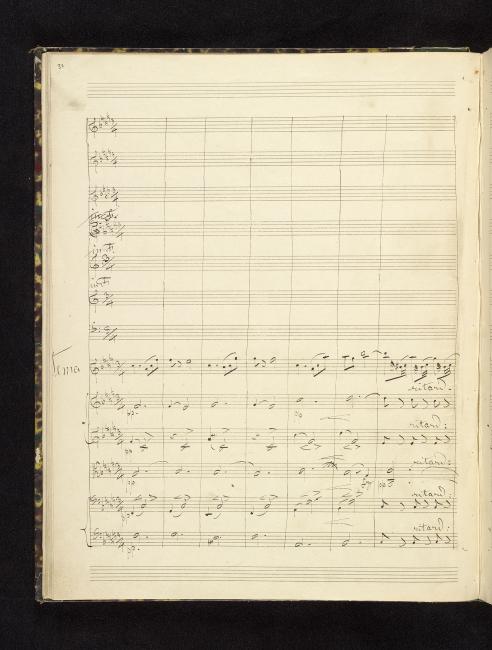 in F
in F
Tema
ritard:
pp.
ritard:
pp
pp
ritard:
pp
pp
ritard:
pp.
ritard:
pp.